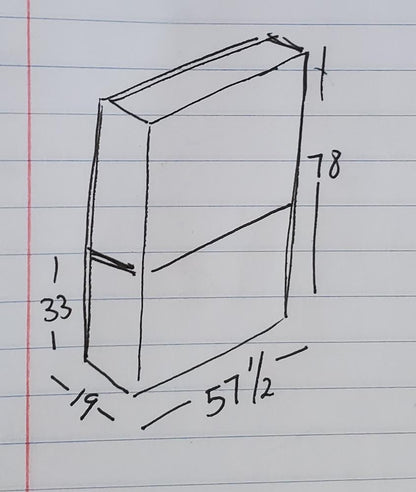 78
33
19
57 1/2